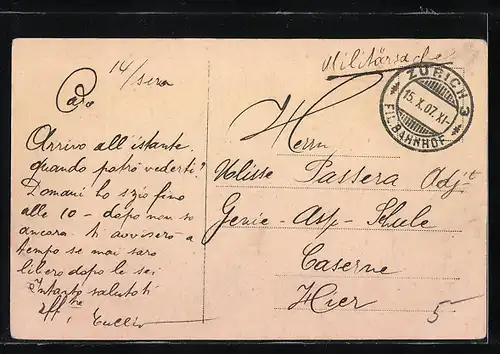 14/sera
Caro
Arrivo all'istante.
quando potrò vederti?
Domani ho szio fino
alle 10 - dopo non so
ancora. ti avviserò a
tempo se mai sarò
libero dopo le sei
Intanto salutoti
aff.
Tullio
Militärsache
ZÜRICH 3
15.X.07.XI-
FIL.BAHNHOF
Herrn
Ulisse Passera Adj-t
Genie-Asp-Schule
Caserne
Hier
5-